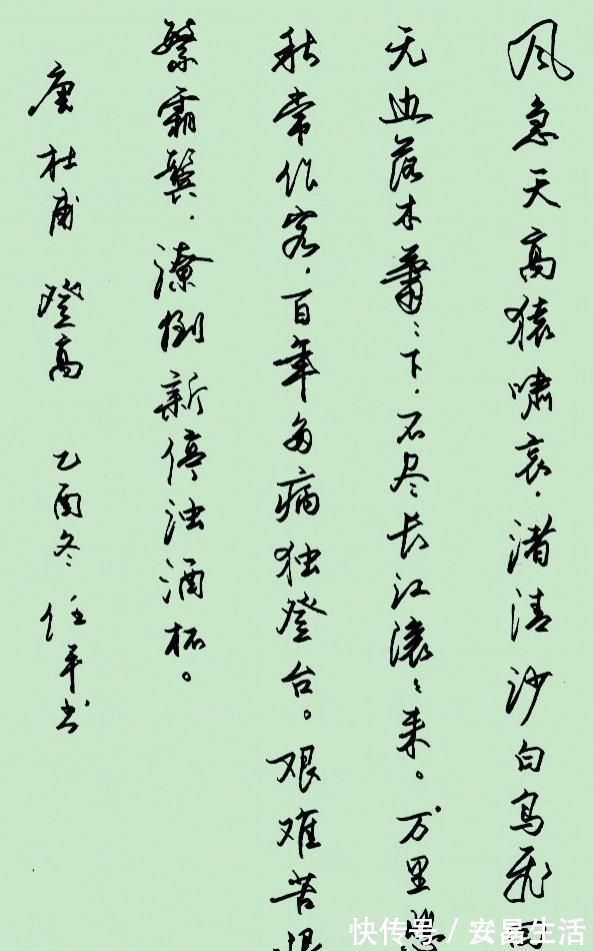 风急天高猿啸哀，渚清沙白鸟飞
无边落木萧〻下，不尽长江滚〻来。万里悲
秋常作客，百年多病独登台。艰难苦恨
繁霜鬓，潦倒新停浊酒杯。
唐杜甫 登高 乙酉冬任平书
快传号 / 安易生活